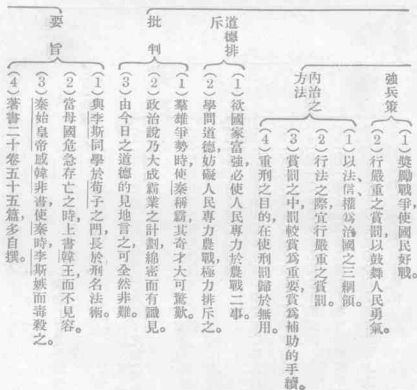 強兵策
(1)獎勵戰爭使國民好戰。
(2)行嚴重之賞罰以鼓舞人民勇氣。
內治之方法
(1)以法、信、權為治國之三綱領。
(2)行法之際宜行嚴重之賞罰。
(3)賞罰之中罰較賞為重要賞為補助的手續。
(4)重刑之目的在使刑罰歸於無用。
道德排斥
(1)欲國家富強必使人民專力於農戰二事。
(2)學問道德妨礙人民專力農戰極力排斥之。
批判
(1)羣雄爭勢時使秦稱霸其奇才大可驚歎。
(2)政治說乃大成霸業之計劃綿密而有識見。
(3)由今日之道德的見地言之可全然非難。
要旨
(1)與李斯同學於荀子之門長於刑名法術。
(2)當母國危急存亡之時上書韓王而不見容。
(3)秦始皇帝感韓非書使秦時李斯嫉而毒殺之。
(4)著書二十卷五十五篇多自撰。